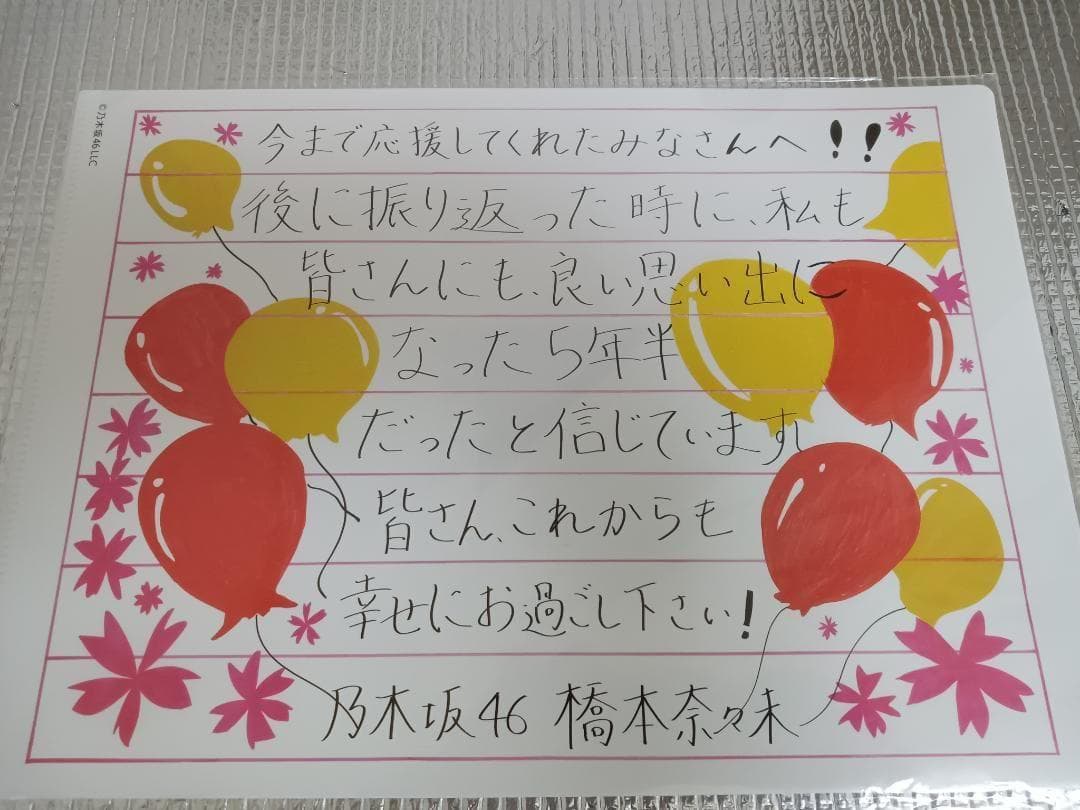 ©乃木坂46LLC
今まで応援してくれたみなさんへ!!
後に振り返った時に、私も
皆さんにも、良い思い出に
なった5年半
だったと信じています
皆さん、これからも
幸せにお過ごし下さい!
乃木坂46 橋本奈々未